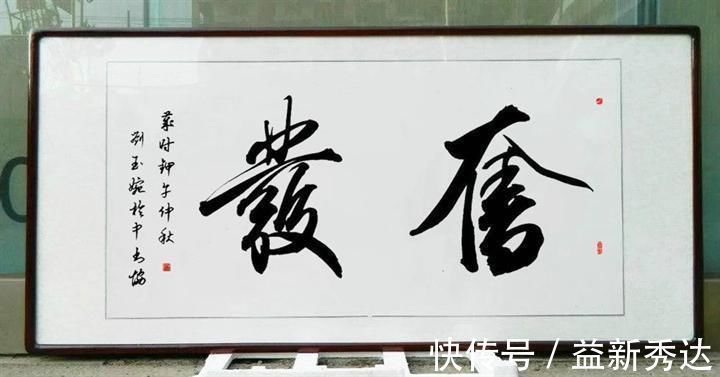 奮發
歲时钾午仲秋
刘玉婉於中书協
快传号 / 益新秀达